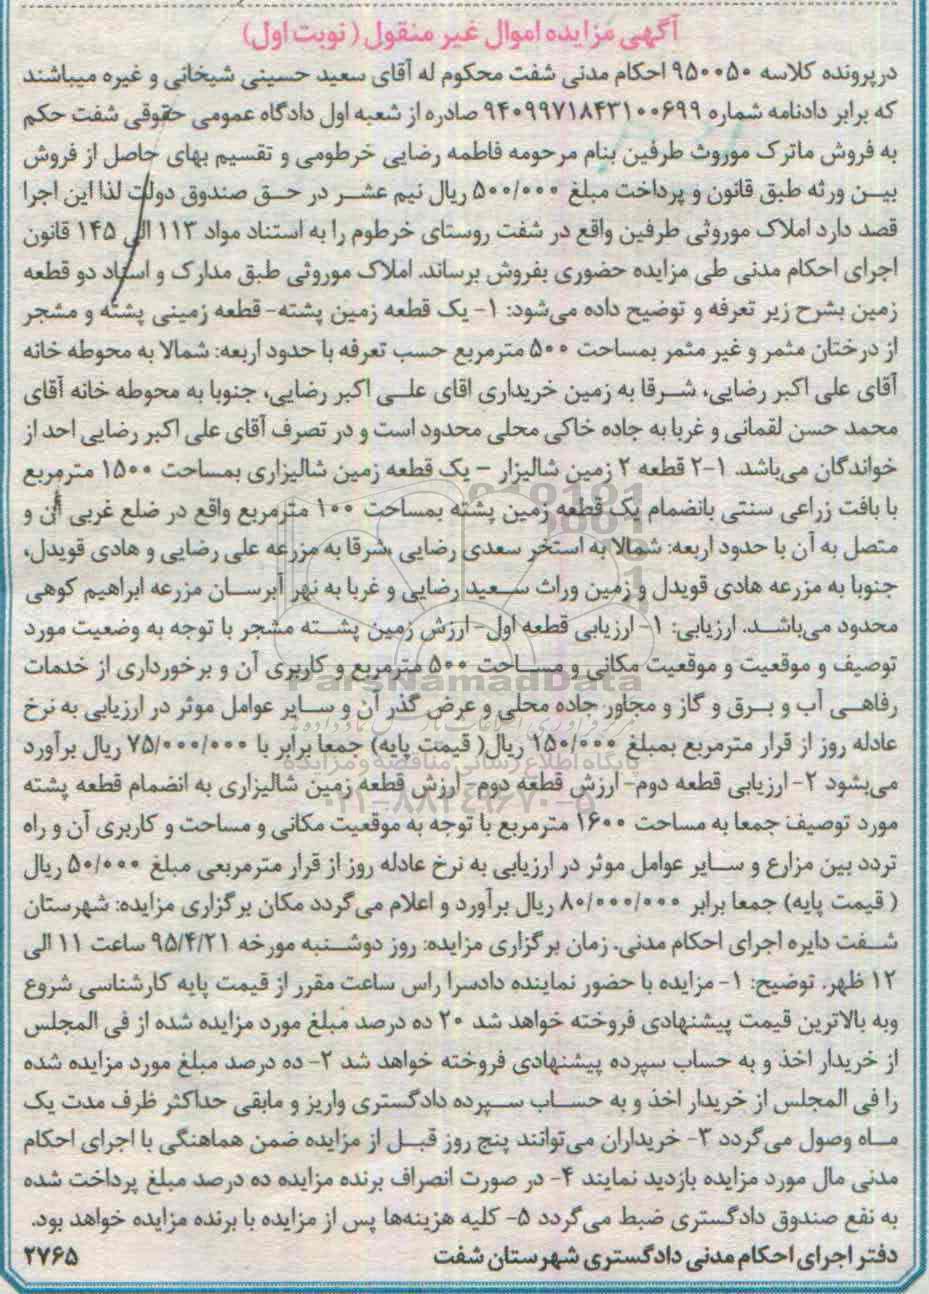 آگهی مزایده اموال غیر منقول (نوبت اول)
درپرونده کلاسه ۹۵۰۰۵۰ احکام مدنی شفت محکوم له آقای سعید حسینی شیخانی و غیره میباشند
که برابر دادنامه شماره ۹۴۰۹۹۷۱۸۴۳۱۰۰۶۹۹ صادره از شعبه اول دادگاه عمومی حقوقی شفت حکم
به فروش ماترک موروث طرفین بنام مرحومه فاطمه رضایی خرطومی و تقسیم بهای حاصل از فروش
بین ورثه طبق قانون و پرداخت مبلغ ۵۰۰/۰۰۰ ریال نیم عشر در حق صندوق دولت لذا این اجرا
قصد دارد املاک موروثی طرفین واقع در شفت روستای خرطوم را به استناد مواد ۱۱۳ الی ۱۴۵ قانون
اجرای احکام مدنی طی مزایده حضوری بفروش برساند. املاک موروثی طبق مدارک و اسناد دو قطعه
زمین بشرح زیر تعرفه و توضیح داده می‌شود: ۱- یک قطعه زمین پشته- قطعه زمینی پشته و مشجر
از درختان مثمر و غیر مثمر بمساحت ۵۰۰ مترمربع حسب تعرفه با حدود اربعه: شمالا به محوطه خانه
آقای علی اکبر رضایی، شرقا به زمین خریداری اقای علی اکبر رضایی، جنوبا به محوطه خانه آقای
محمد حسن لقمانی و غربا به جاده خاکی محلی محدود است و در تصرف آقای علی اکبر رضایی احد از
خواندگان می‌باشد. ۱-۲ قطعه ۲ زمین شالیزار – یک قطعه زمین شالیزاری بمساحت ۱۵۰۰ مترمربع
با بافت زراعی سنتی بانضمام یک قطعه زمین پشته بمساحت ۱۰۰ مترمربع واقع در ضلع غربی آن و
متصل به آن با حدود اربعه: شمالا به استخر سعدی رضایی ،شرقا به مزرعه علی رضایی و هادی قویدل،
جنوبا به مزرعه هادی قویدل و زمین وراث سعید رضایی و غربا به نهر آبرسان مزرعه ابراهیم کوهی
محدود می‌باشد. ارزیابی: ۱- ارزیابی قطعه اول- ارزش زمین پشته مشجر با توجه به وضعیت مورد
توصیف و موقعیت و موقعیت مکانی و مساحت ۵۰۰ مترمربع و کاربری آن و برخورداری از خدمات
رفاهی آب و برق و گاز و مجاور جاده محلی و عرض گذر آن و سایر عوامل موثر در ارزیابی به نرخ
عادله روز از قرار مترمربع بمبلغ ۱۵۰/۰۰۰ ریال( قیمت پایه) جمعا برابر با ۷۵/۰۰۰/۰۰۰ ریال برآورد
می‌بشود ۲- ارزیابی قطعه دوم- ارزش قطعه دوم- ارزش قطعه زمین شالیزاری به انضمام قطعه پشته
مورد توصیف جمعا به مساحت ۱۶۰۰ مترمربع با توجه به موقعیت مکانی و مساحت و کاربری آن و راه
تردد بین مزارع و سایر عوامل موثر در ارزیابی به نرخ عادله روز از قرار مترمربعی مبلغ ۵۰/۰۰۰ ریال
( قیمت پایه) جمعا برابر ۸۰/۰۰۰/۰۰۰ ریال برآورد و اعلام می‌گردد مکان برگزاری مزایده: شهرستان
شفت دایره اجرای احکام مدنی. زمان برگزاری مزایده: روز دوشنبه مورخه ۹۵/۴/۲۱ ساعت ۱۱ الی
۱۲ ظهر. توضیح: ۱- مزایده با حضور نماینده دادسرا راس ساعت مقرر از قیمت پایه کارشناسی شروع
وبه بالاترین قیمت پیشنهادی فروخته خواهد شد ۲۰ ده درصد مبلغ مورد مزایده شده از فی المجلس
از خریدار اخذ و به حساب سپرده پیشنهادی فروخته خواهد شد ۲- ده درصد مبلغ مورد مزایده شده
را فی المجلس از خریدار اخذ و به حساب سپرده دادگستری واریز و مابقی حداکثر ظرف مدت یک
ماه وصول می‌گردد ۳- خریداران می‌توانند پنج روز قبل از مزایده ضمن هماهنگی با اجرای احکام
مدنی مال مورد مزایده بازدید نمایند ۴- در صورت انصراف برنده مزایده ده درصد مبلغ پرداخت شده
به نفع صندوق دادگستری ضبط می‌گردد ۵- کلیه هزینه‌ها پس از مزایده با برنده مزایده خواهد بود.
دفتر اجرای احکام مدنی دادگستری شهرستان شفت ۲۷۶۵
ParsNamadData
پایگاه اطلاع رسانی مناقصه و مزایده
۰۲۱-۸۸۳۴۹۶۷۰-۵